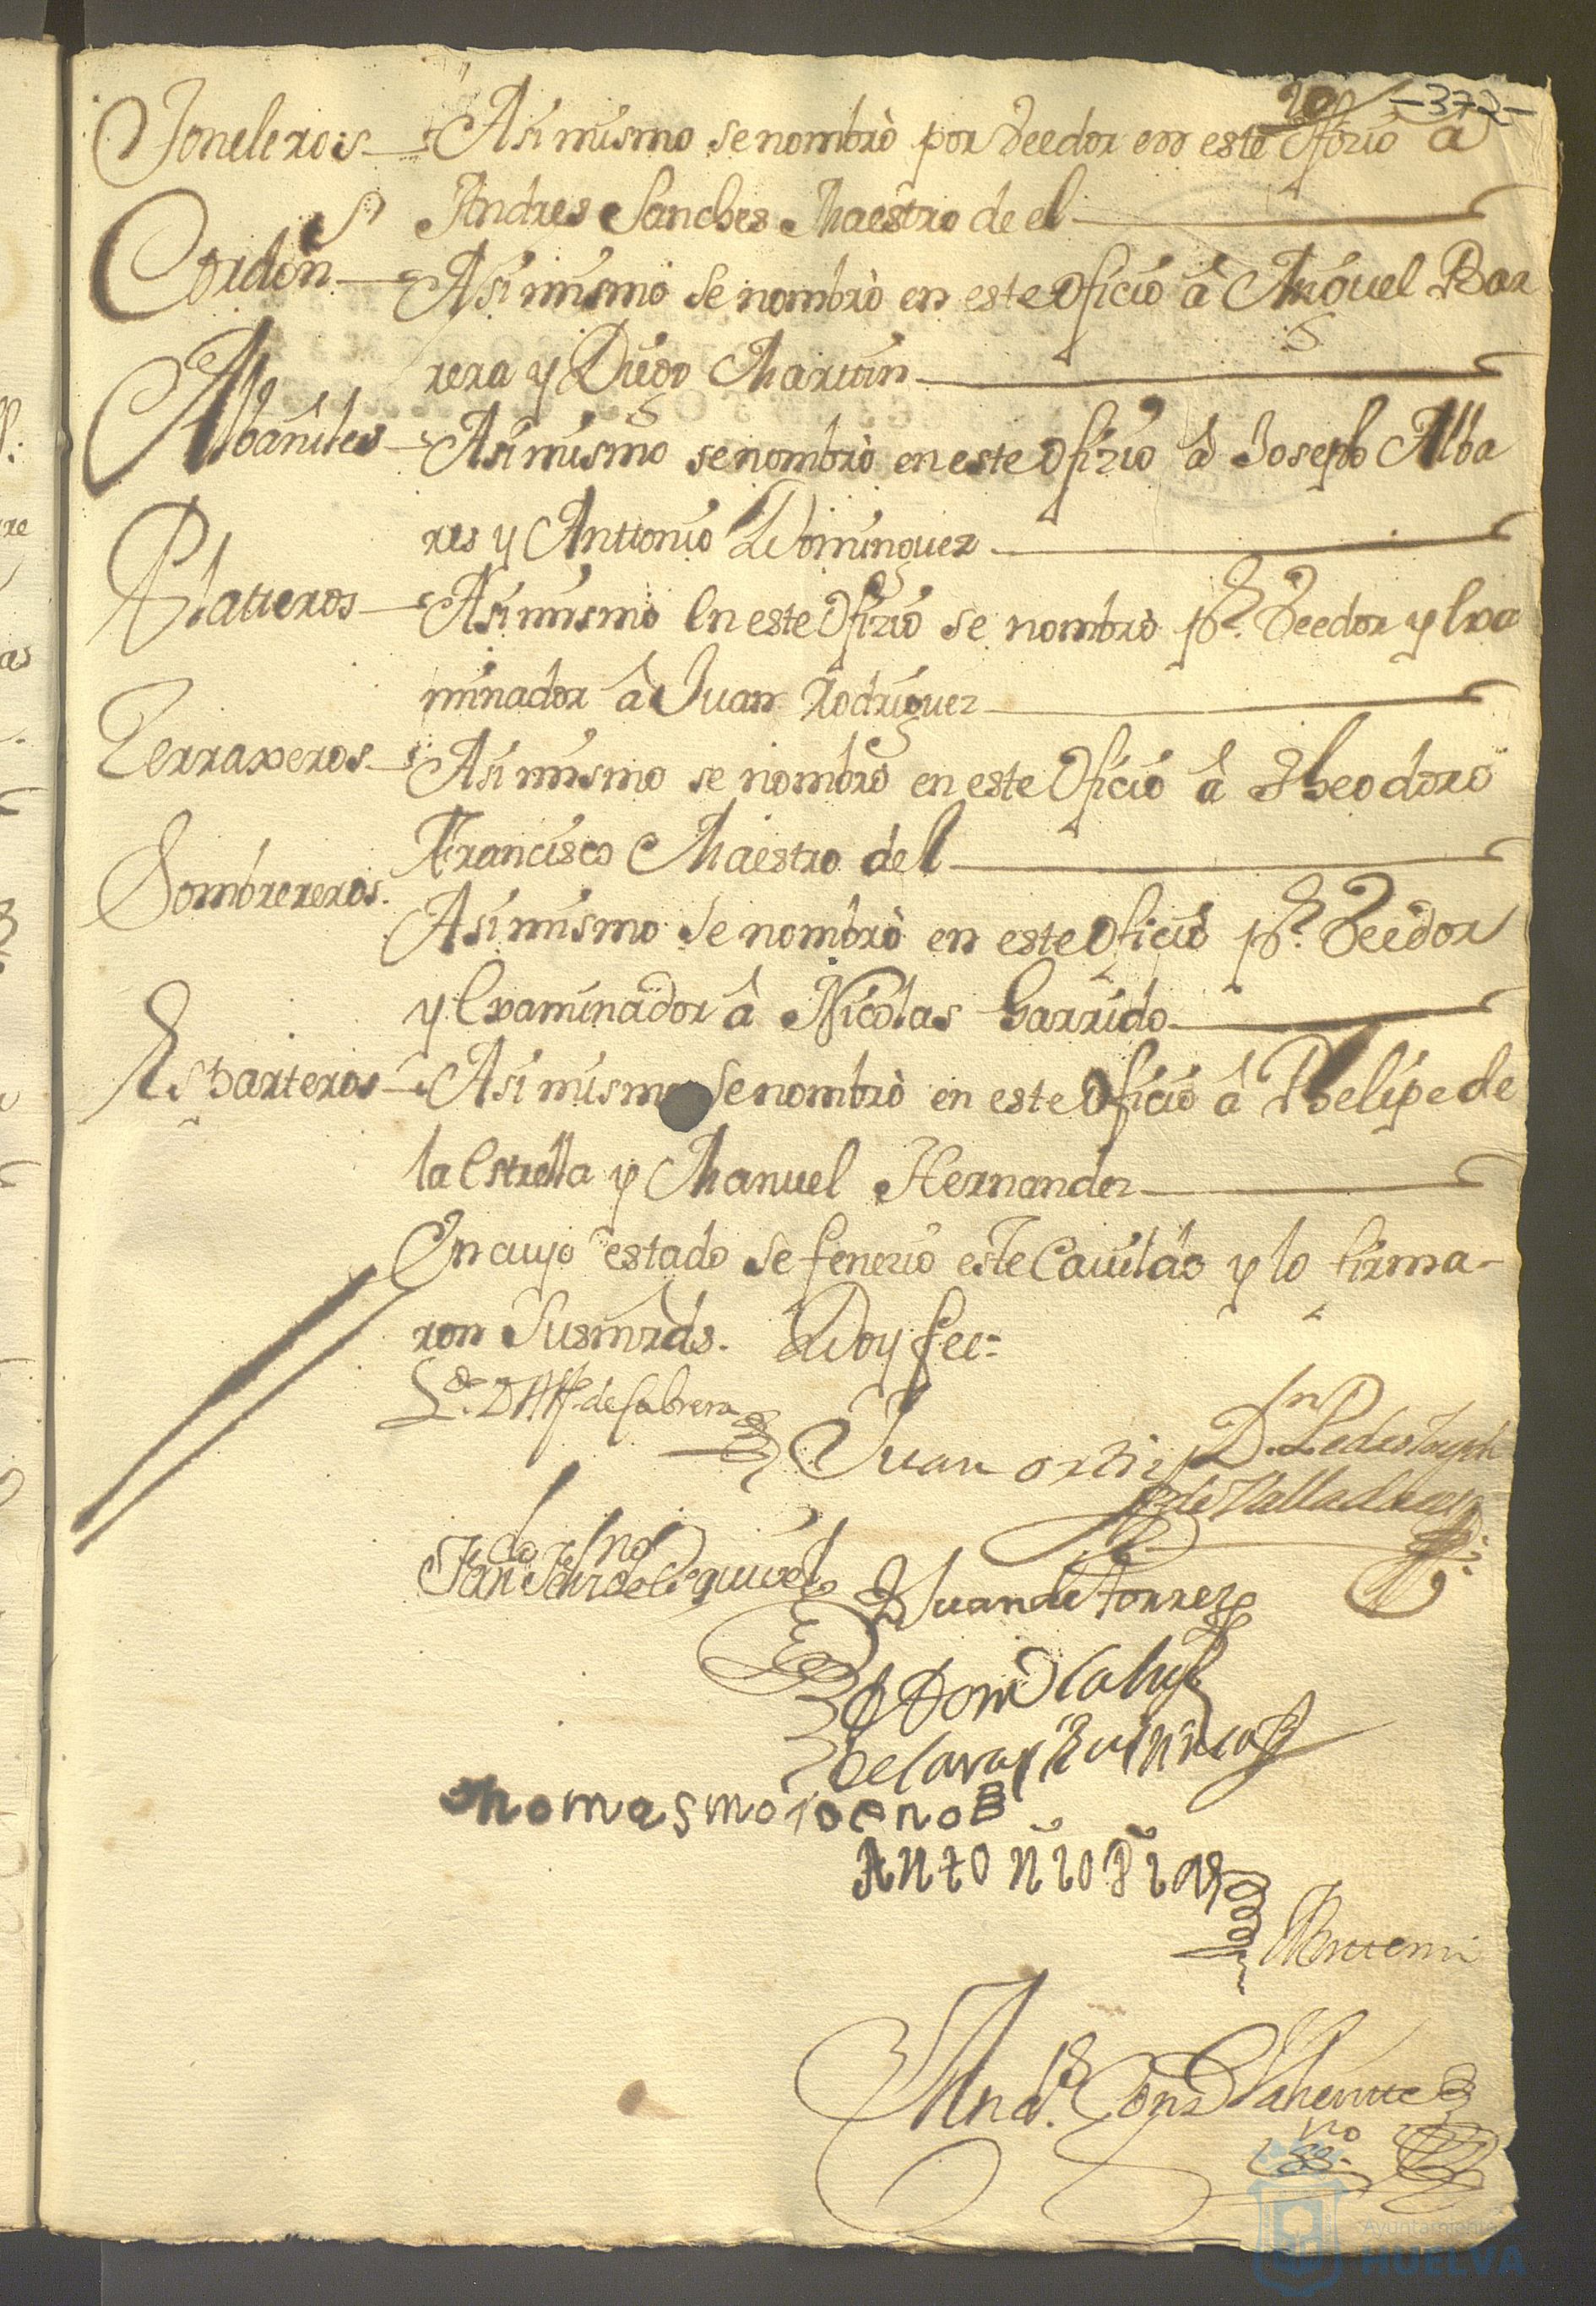 20 -372-
Toneleros — Asimismo se nombrò por Veedor en este ofizio a
Andres Sanches Maestro de el
Cordon — Asimismo se nombrò en este Oficio â Miguel Bar
rera y Diego Martin
Albañiles — Asimismo se nombrò en este Ofizio â Joseph Alba
res y Anttonio Dominguez
Platteros — Asimismo En este Ofizio se nombrò pr. Veedor y Exa
minador â Juan Rodriguez
Zerraxeros — Asimismo se nombrò en este Oficio â Theodoro
Francisco Maestro del
Sombrereros. Asimismo se nombrò en este Oficio pr. Veedor
y Examinador â Nicolas Garrido
Esparteros — Asimismo se nombrò en este Oficio â Phelipe de
la Estrella y Manuel Hernandez
En cuyo estado se fenezio este Cavildo y lo firma-
ron Susmrds. Doy fee=
Ldo. D Alf. de Cabrera
Juan ortiz
Dn. Joseph
de Valladares
de Esquivel
Juan de torrez
thomas moreno
Antonio Dias
Antte mi
And. Gonz Valiente
ssno.
Ayuntamiento de
HUELVA